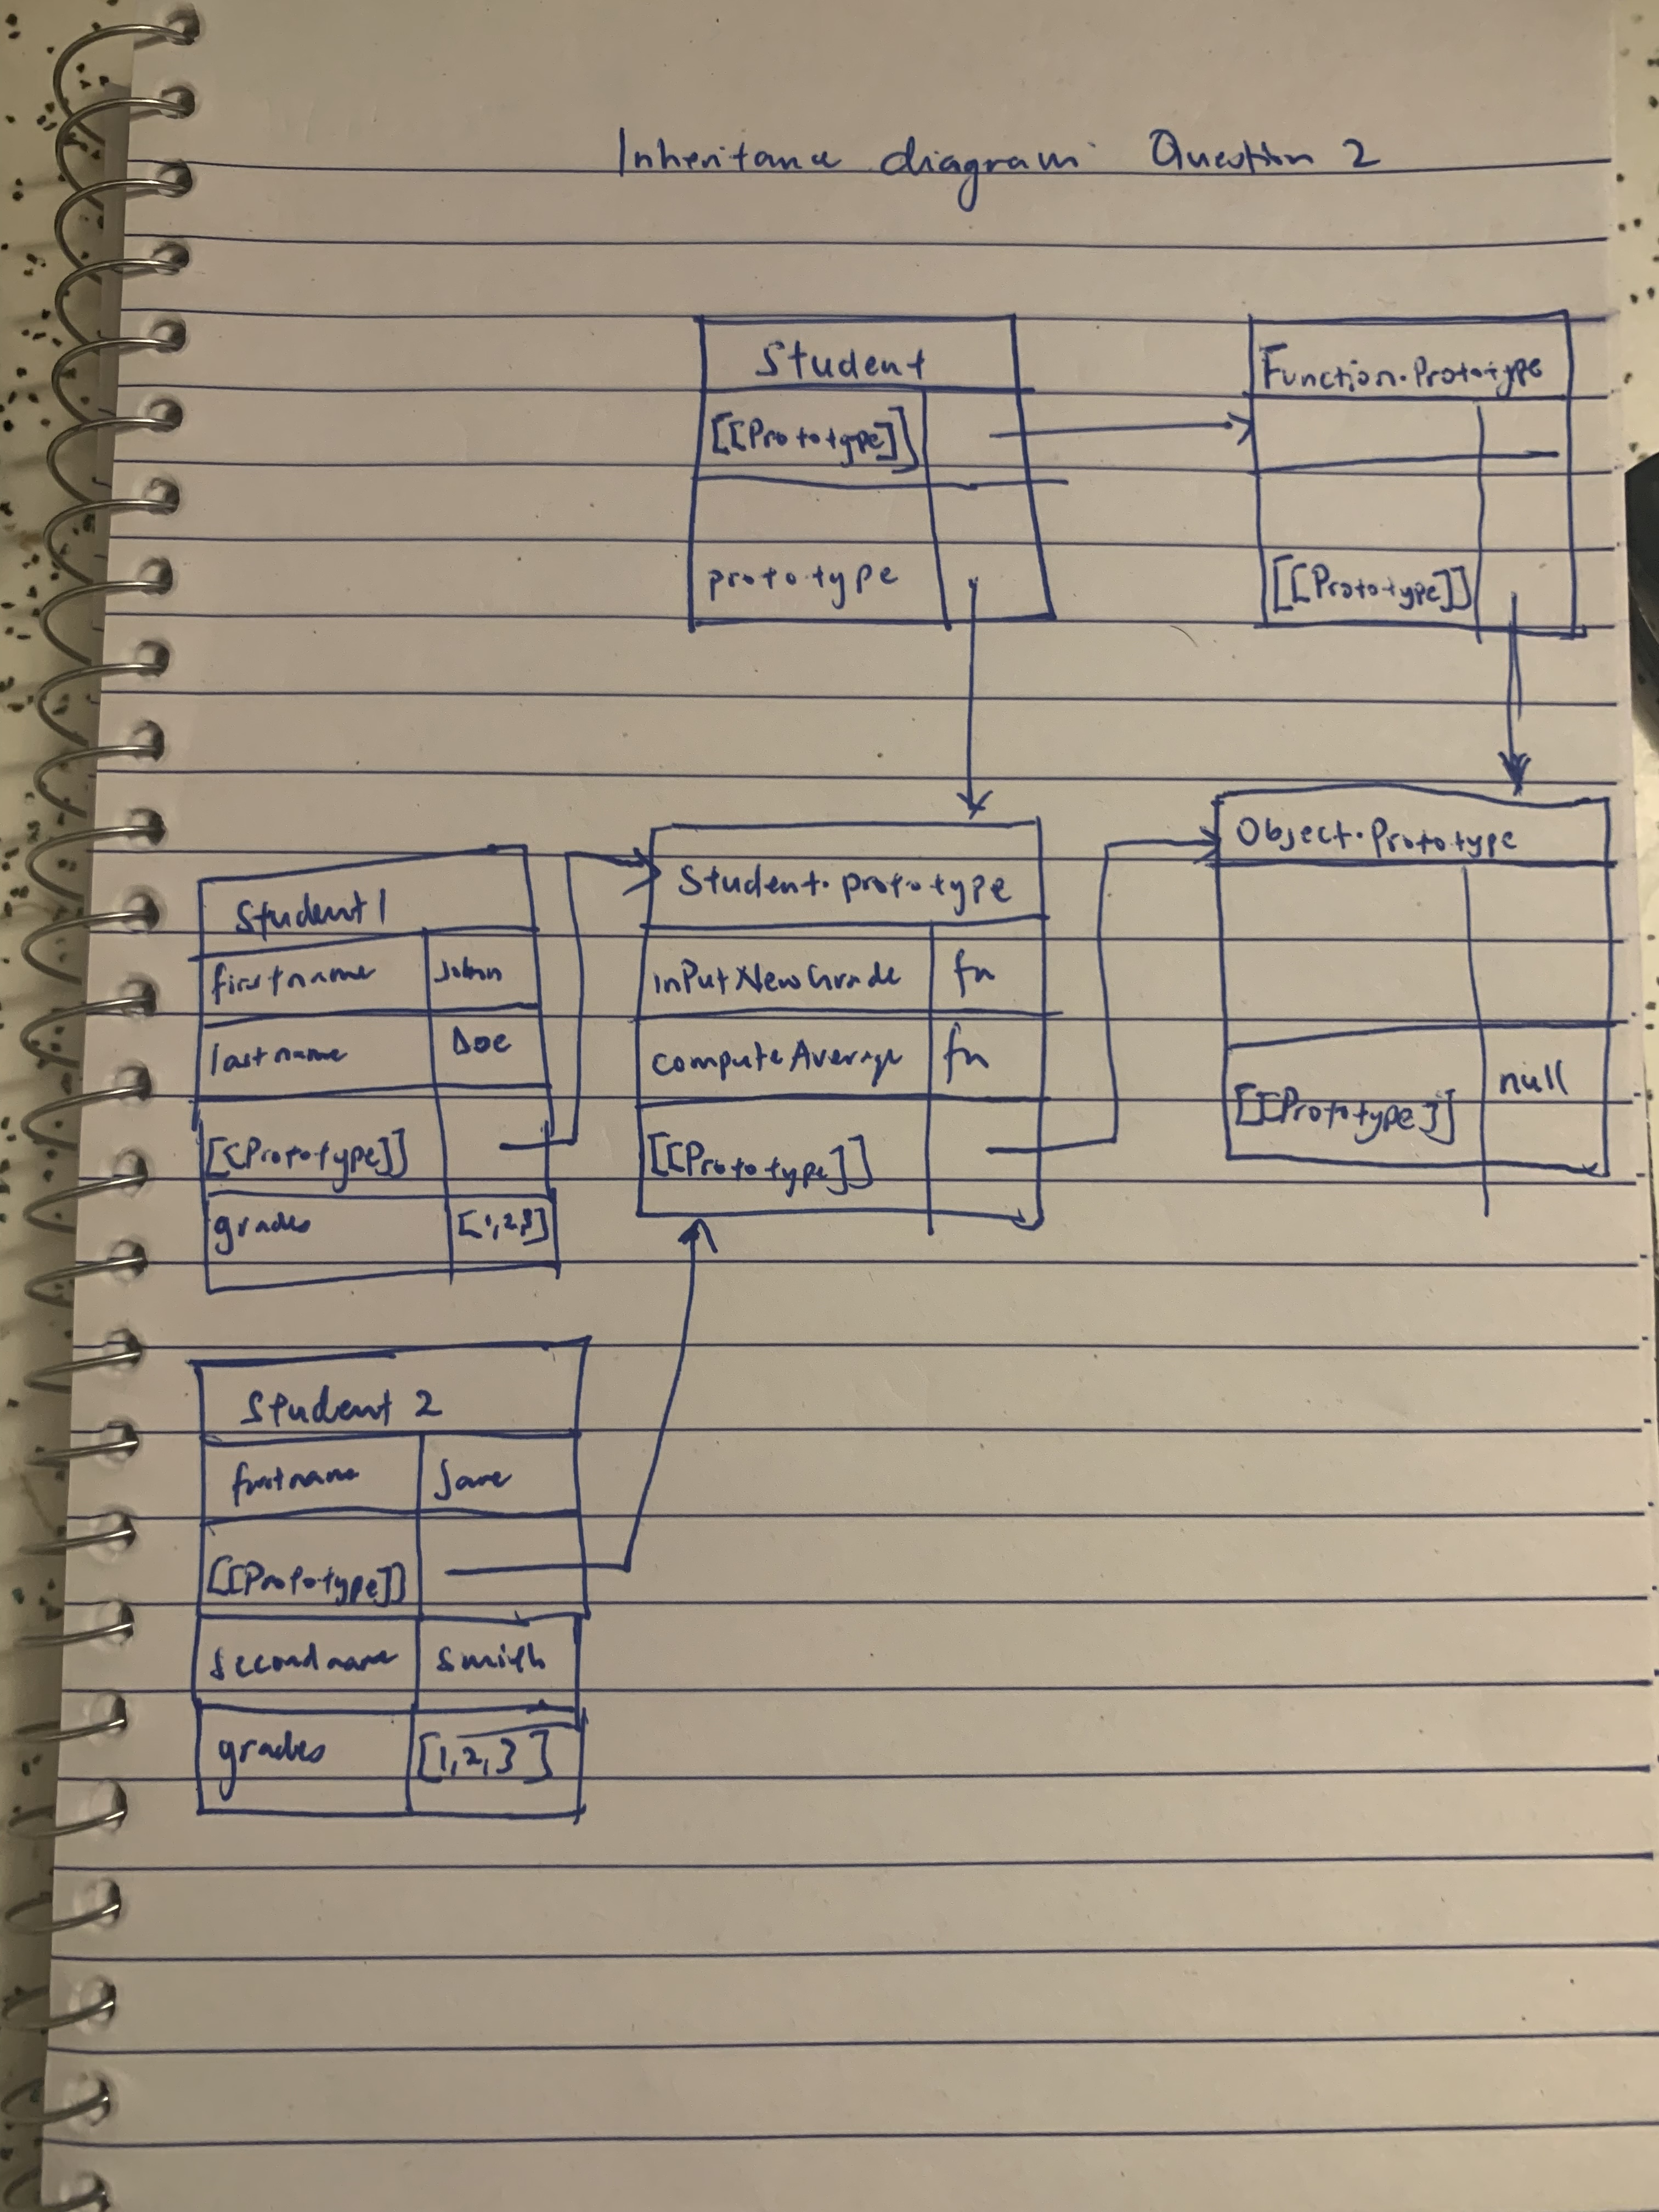 Inheritance diagram Question 2
Student
[[Prototype]]
prototype
Function.Prototype
[[Prototype]]
Student1
firstname John
lastname Doe
[[Prototype]]
grades [1,2,3]
Student.prototype
inPutNewGrade fn
computeAverage fn
[[Prototype]]
Object.Prototype
[[Prototype]] null
Student 2
firstname Jane
[[Prototype]]
secondname Smith
grades [1,2,3]